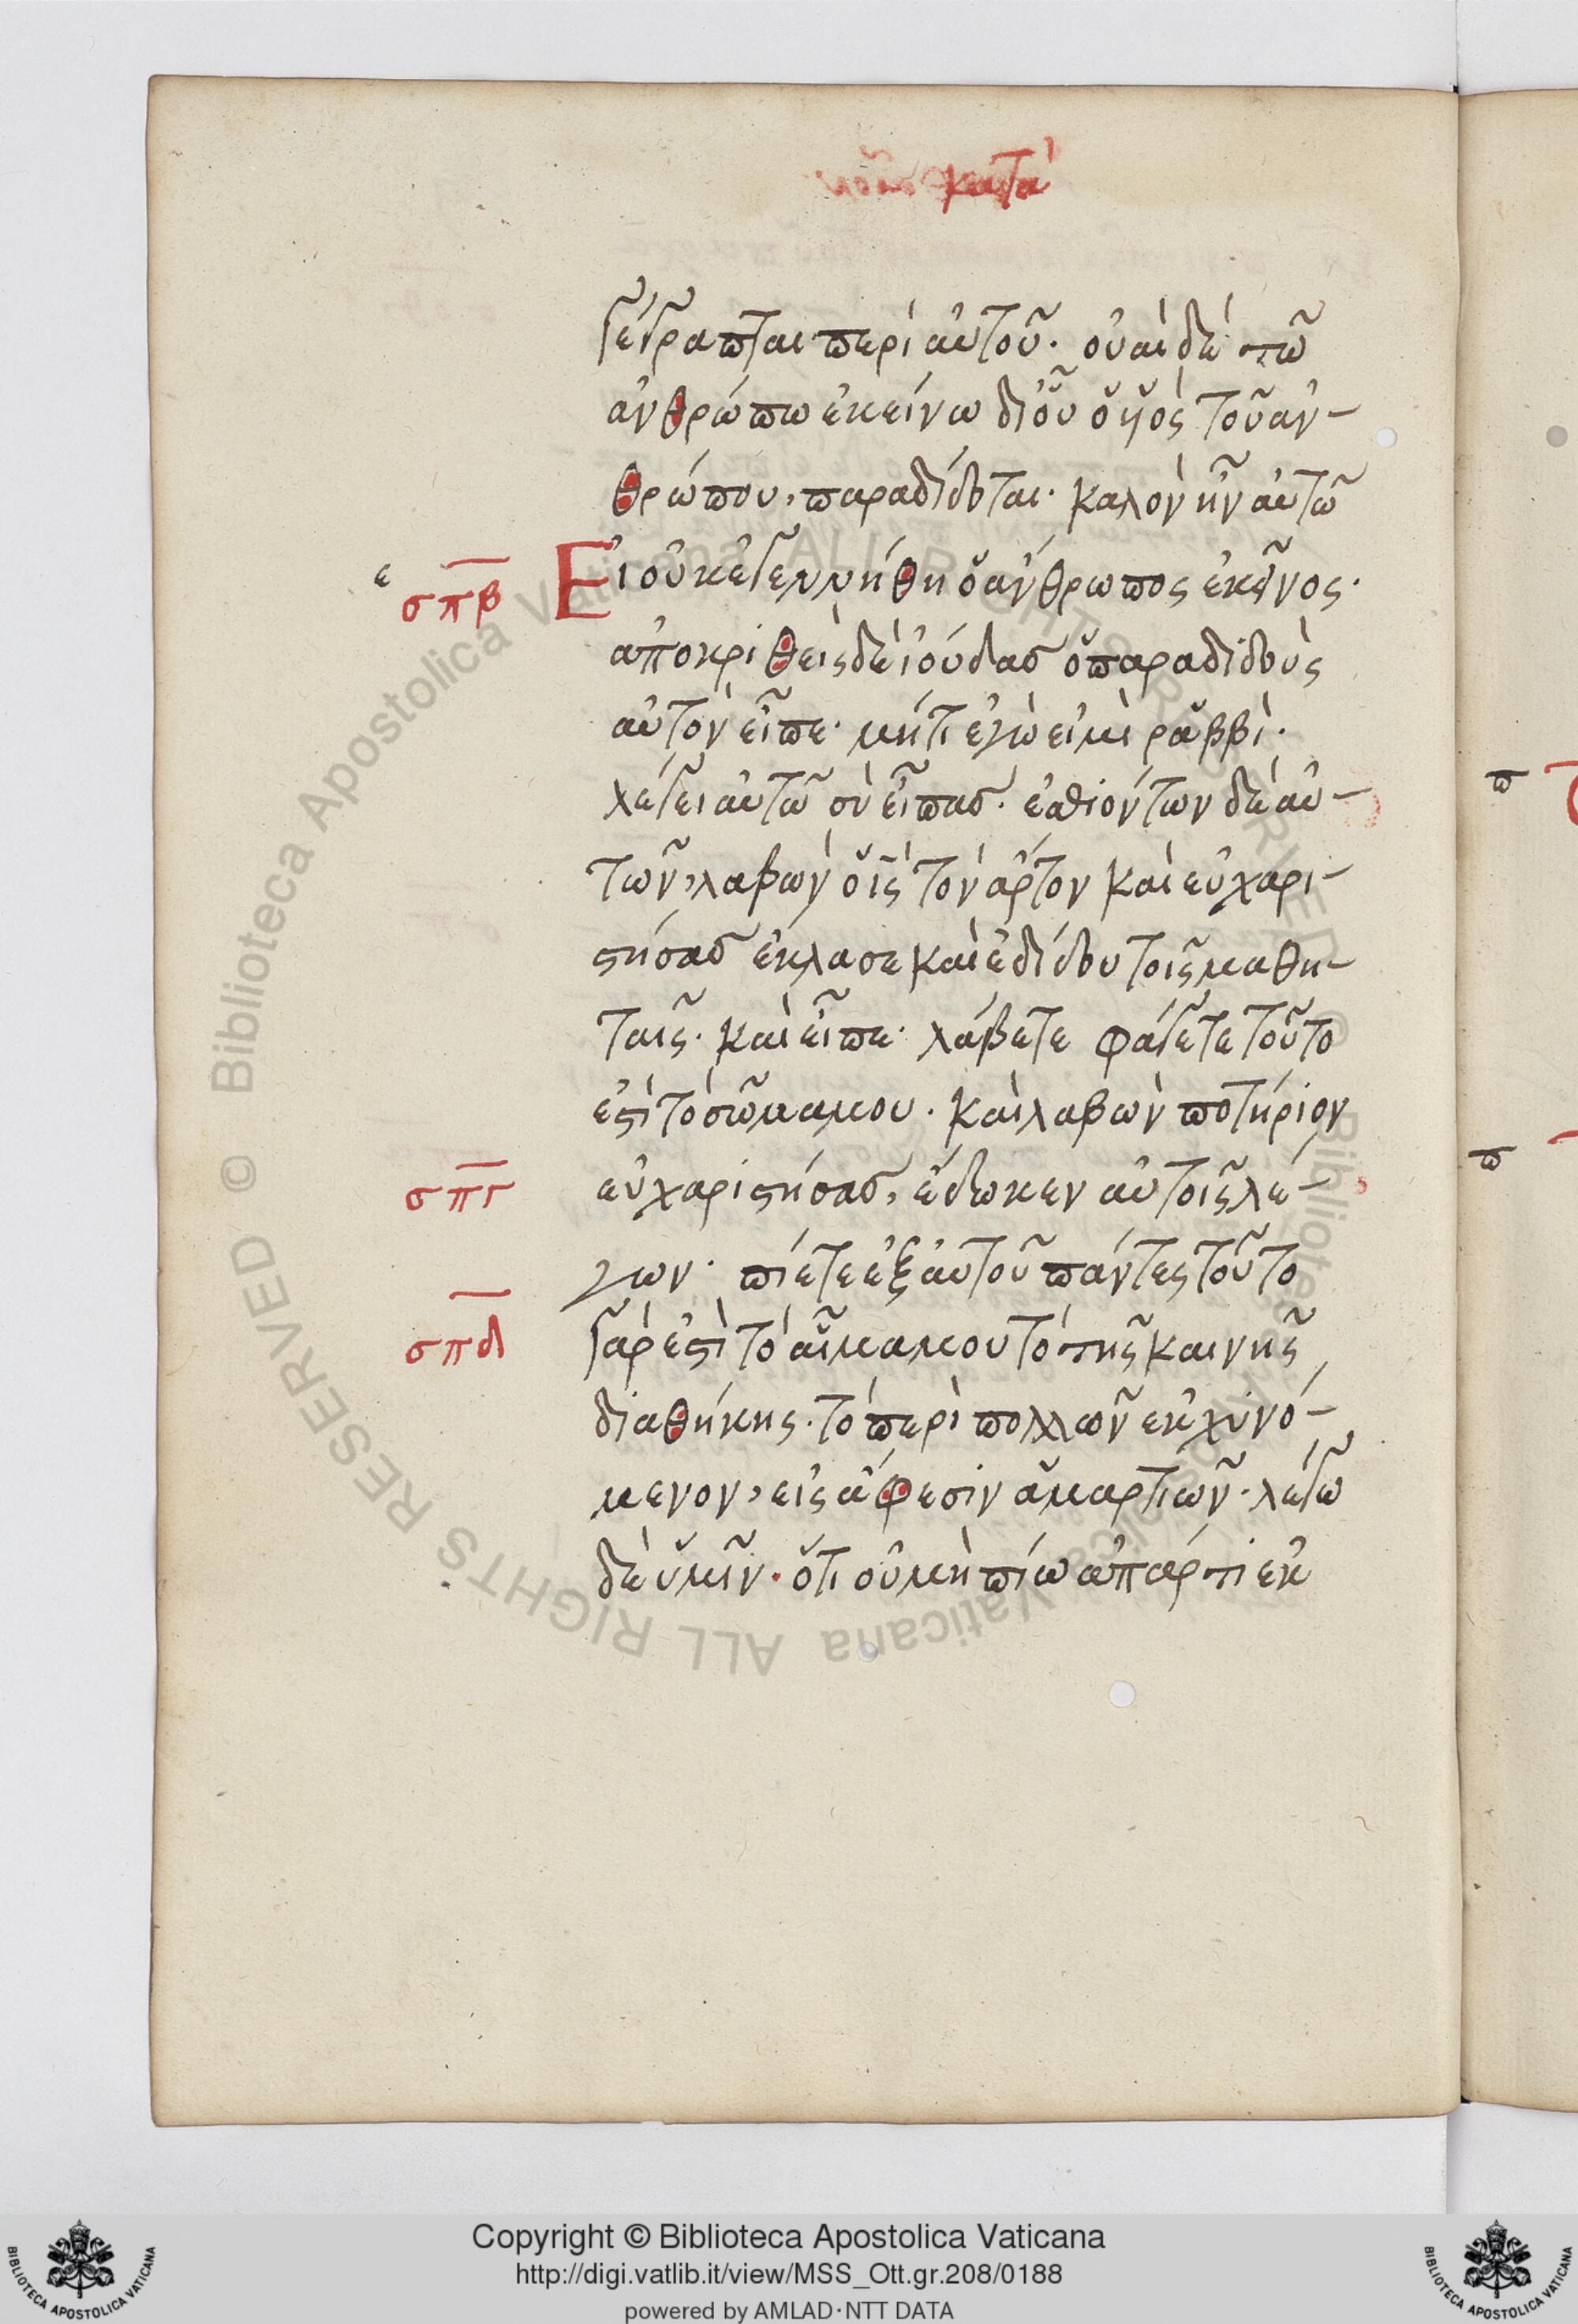 κατὰ
γέγραπται περὶ αὐτοῦ· οὐαὶ δὲ τῶ
ἀνθρώπω ἐκείνω δι οὗ ὁ υἱὸς τοῦ ἀν-
θρώπου, παραδίδοται· καλὸν ἦν αὐτῶ
ε σπβ Εἰ οὐκ ἐγεννήθη ὁ ἄνθρωπος ἐκεῖνος·
ἀποκριθεὶς δὲ ἰούδας ὁ παραδιδοὺς
αὐτὸν εἶπε· μήτι ἐγὼ εἰμὶ ῥαββὶ·
λέγει αὐτῶ σὺ εἶπας· ἐσθιόντων δὲ αὐ-
τῶν, λαβὼν ὁ ις τὸν ἄρτον καὶ εὐχαρι-
στήσας ἔκλασε καὶ ἐδίδου τοῖς μαθη-
ταῖς· καὶ εἶπε· λάβετε φάγετε τοῦτο
ἐστὶ τὸ σῶμα μου· καὶ λαβὼν ποτήριον
σπγ εὐχαριστήσας, ἔδωκεν αὐτοῖς λέ-
γων· πίετε ἐξ αὐτοῦ πάντες τοῦτο
σπδ γάρ ἐστὶ τὸ αἷμα μου τὸ τῆς καινῆς
διαθήκης· τὸ περὶ πολλῶν ἐκχυνό-
μενον, εἰς ἄφεσιν ἁμαρτιῶν· λέγω
δὲ ὑμῖν· ὅτι οὐ μὴ πίω ἀπάρτι ἐκ
ϖ
ϖ
© Biblioteca Apostolica Vaticana ALL RIGHTS RESERVED
© Biblioteca Apostolica Vaticana ALL RIGHTS RESERVED
Copyright © Biblioteca Apostolica Vaticana
http://digi.vatlib.it/view/MSS_Ott.gr.208/0188
powered by AMLAD·NTT DATA
BIBLIOTECA APOSTOLICA VATICANA
BIBLIOTECA APOSTOLICA VATICANA